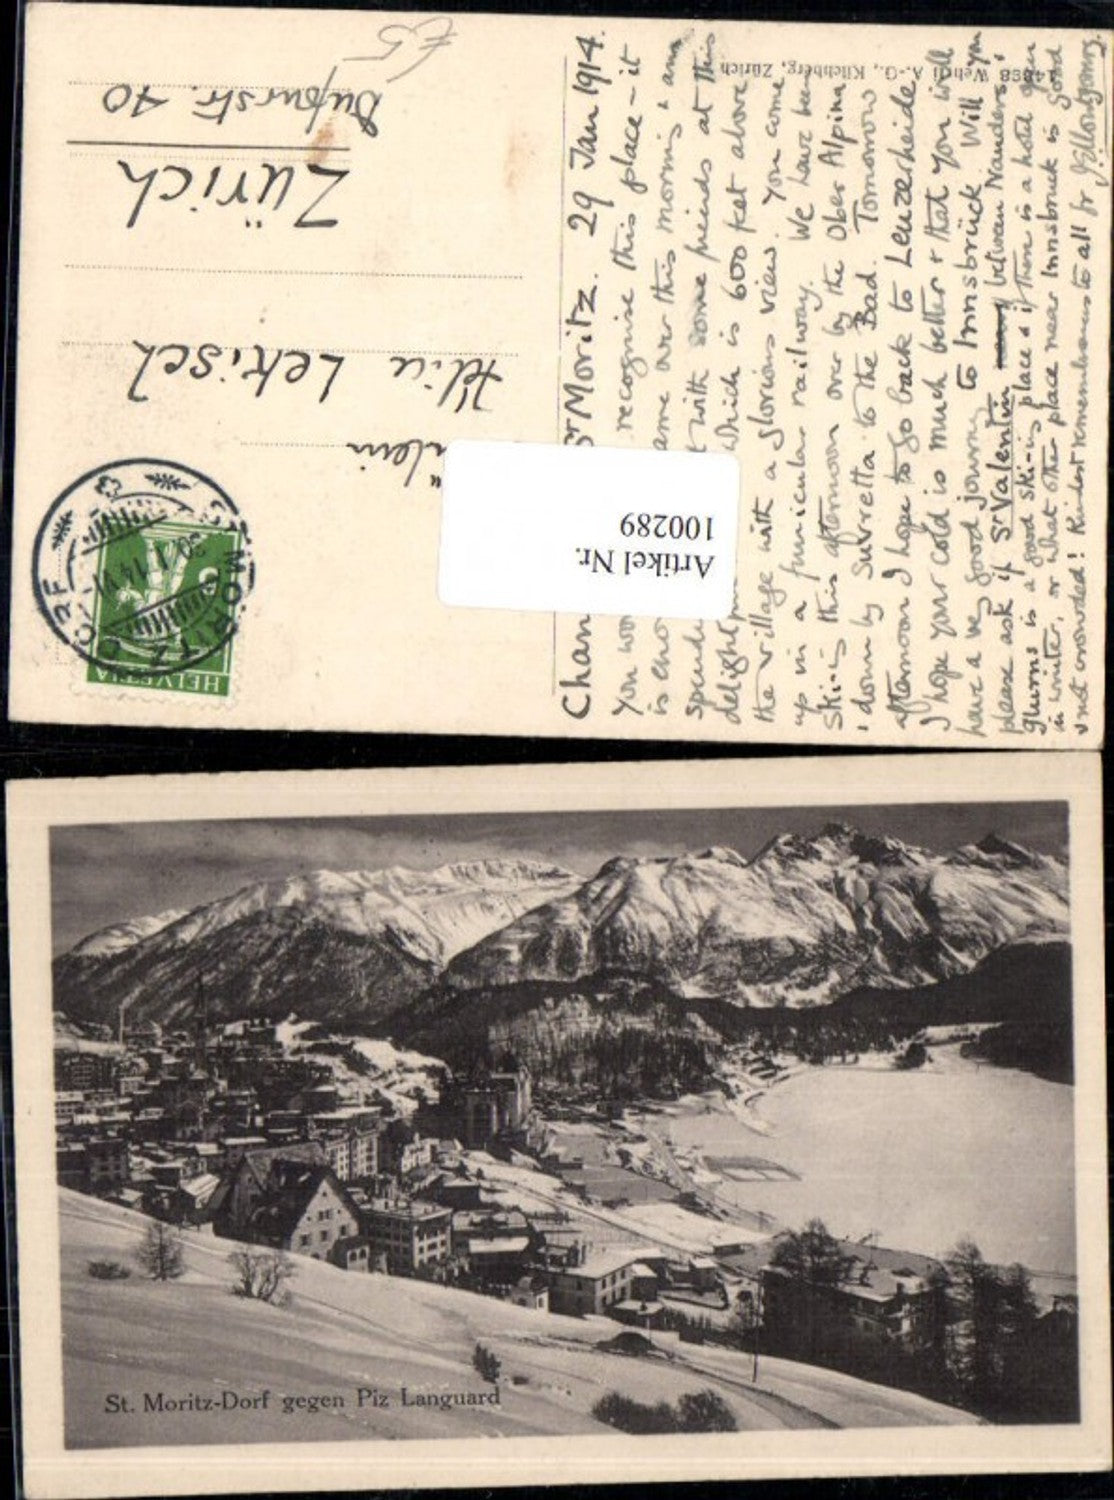 Chan
St Moritz. 29 Jan 1914.
You wo recognise this place - it
is ame over this morning & am
spend t with some friends at this
delight which is 600 feet above
the village with a glorious view. You come
up in a funicular railway. We have been
Ski-ing this afternoon over by the Ober Alpina
& down by Suvretta to the Bad. Tomorrow
afternoon I hope to go back to Lenzerheide
I hope your cold is much better & that you will
have a very good journey to Innsbrück. Will you
please ask if St Valentin between Nauders &
Glurns is a good ski-ing place & if there is a hotel open
in winter, or what other place near Innsbruck is good
& not crowded! Kindest remembrances to all fr
14868 Wehrli A.-G., Kilchberg, Zürich
£5
Lekisch
Zürich
Dufourstr. 40
ST. MORITZ DORF
30.I.14.VI
HELVETIA
Artikel Nr.
100289
St. Moritz-Dorf gegen Piz Languard